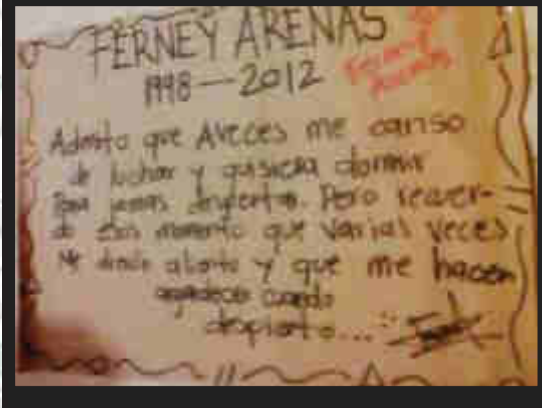 FERNEY ARENAS
1998—2012
Ferney
Arenas
Admito que Aveces me canso
de luchar y quisiera dormir
Para jamas despertar. Pero recuer-
do esos momento que varias veces
Me aliento y que me hacen
agradecer cuando
despierto...